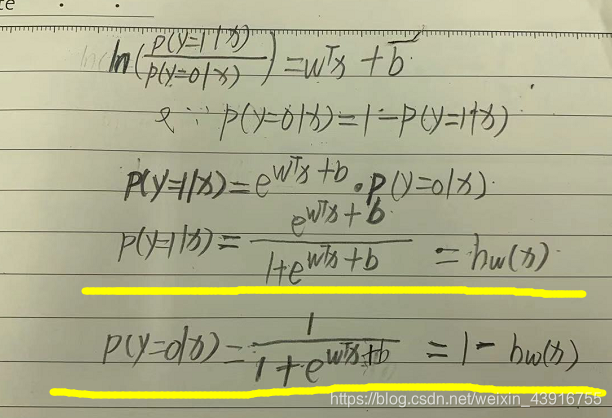 te
ln(p(y=1|x)/p(y=0|x)) = wᵀx + b
∵ p(y=0|x) = 1 - p(y=1|x)
p(y=1|x) = e^(wᵀx + b) · p(y=0|x)
p(y=1|x) = e^(wᵀx + b) / (1 + e^(wᵀx + b)) = hw(x)
p(y=0|x) = 1 / (1 + e^(wᵀx + b)) = 1 - hw(x)
https://blog.csdn.net/weixin_43916755